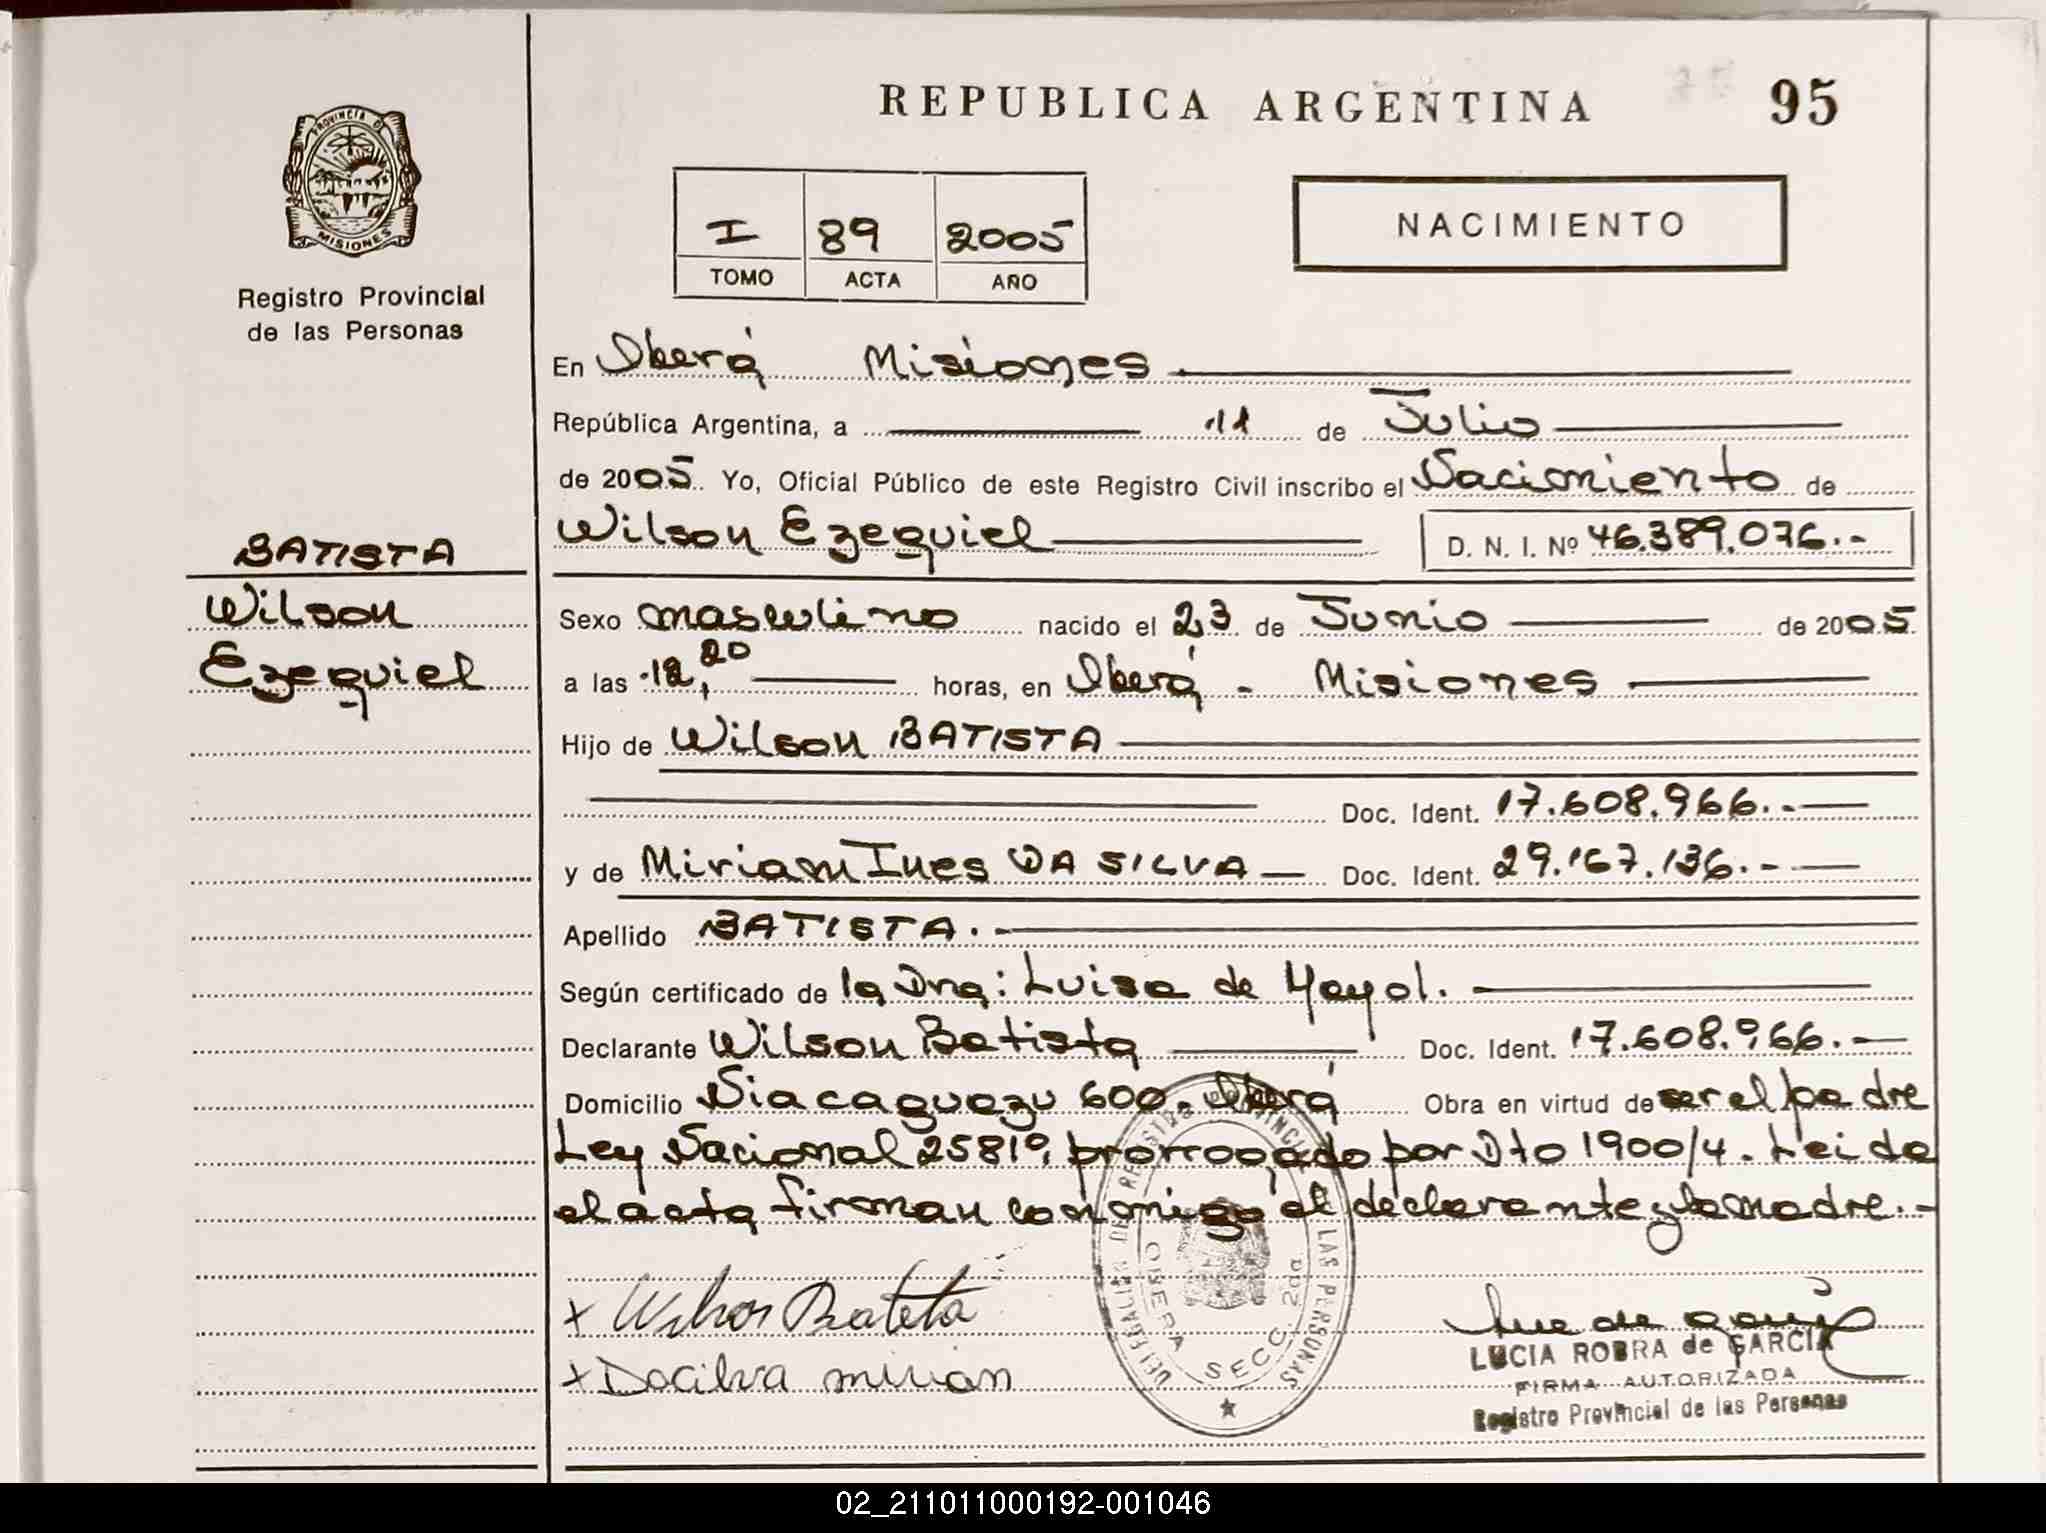 REPUBLICA ARGENTINA 95
PROVINCIA DE
MISIONES
Registro Provincial
de las Personas
I 89 2005
TOMO ACTA AÑO
NACIMIENTO
En Oberá Misiones
República Argentina, a 11 de Julio
de 2005. Yo, Oficial Público de este Registro Civil inscribo el Nacimiento de
Wilson Ezequiel D. N. I. Nº 46.389.076.-
BATISTA
Wilson
Ezequiel
Sexo masculino nacido el 23 de Junio de 2005.
a las 12,20 horas, en Oberá - Misiones
Hijo de Wilson BATISTA
Doc. Ident. 17.608.966.-
y de Miriam Ines DA SILVA Doc. Ident. 29.167.136.-
Apellido BATISTA.-
Según certificado de la Dra: Luisa de Mayol.
Declarante Wilson Batista Doc. Ident. 17.608.966.-
Domicilio Ñacaguazu 600. Oberá Obra en virtud de ser el padre
Ley Nacional 25819, prorrogado por Dto 1900/4. Leida
el acta firman conmigo el declarante y la madre.-
x Wilson Batista
x Dacilva mirian
DELEGACION DEL REGISTRO PROVINCIAL DE LAS PERSONAS
OBERA SECC. 2da
LUCIA ROBRA de GARCIA
FIRMA AUTORIZADA
Registro Provincial de las Personas
02_211011000192-001046